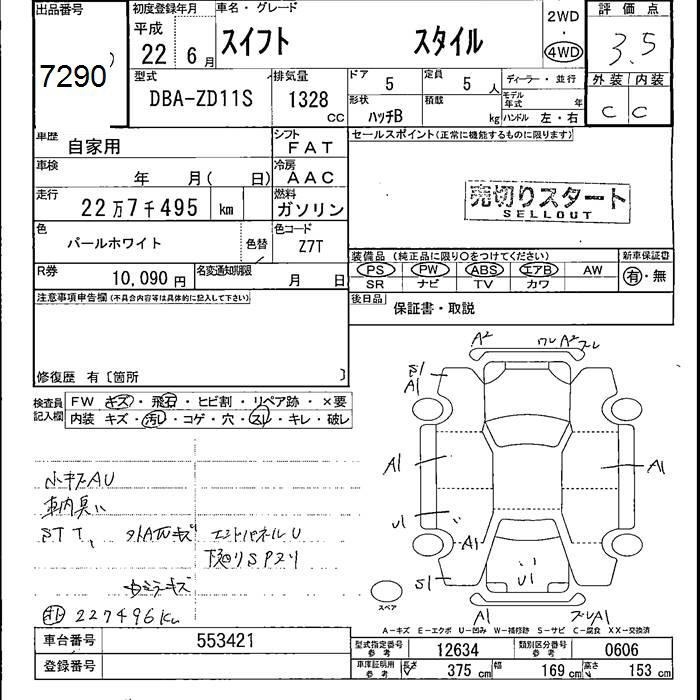 出品番号 初度登録年月 車名・グレード 2WD 評価点
平成
22 年 6 月 スイフト スタイル 4WD 3.5
7290
型式 排気量 ドア 定員 ディーラー・並行 外装 内装
DBA-ZD11S 1328 CC 5 5 人 モデル年式 年 C C
形状 積載
ハッチB kg ハンドル 左・右
車歴 自家用 シフト FAT セールスポイント(正常に機能するものに限ります)
車検 年 月( 日) 冷房 AAC
売切りスタート
SELLOUT
走行 22万7千495 km 燃料 ガソリン
色 パールホワイト 色替 色コード Z7T
装備品 (純正品に限り○をつけてください) 新車保証書
PS PW ABS エアB AW 有・無
SR ナビ TV カワ
R券 10,090 円 名変通知期限 月 日
後日品 保証書・取説
注意事項申告欄(不具合内容等は具体的に記入して下さい)
修復歴 有〔箇所 〕
検査員記入欄 FW キズ・飛石・ヒビ割・リペア跡・×要
内装 キズ・汚レ・コゲ・穴・スレ・キレ・破レ
A2 ワレ A2 ズレ
S1
A1
A1 A1
U1
A1
U1
S1
A1 ズレA1
小キズAU
車内臭い
STT、
エンドパネルU
下廻りSPスリ
227496km
スペア
A-キズ E-エクボ U-凹み W-補修跡 S-サビ C-腐食 XX-交換済
車台番号 553421 型式指定番号 参考 12634 類別区分番号 参考 0606
登録番号 車庫証明用 参考 長さ 375 cm 幅 169 cm 高さ 153 cm